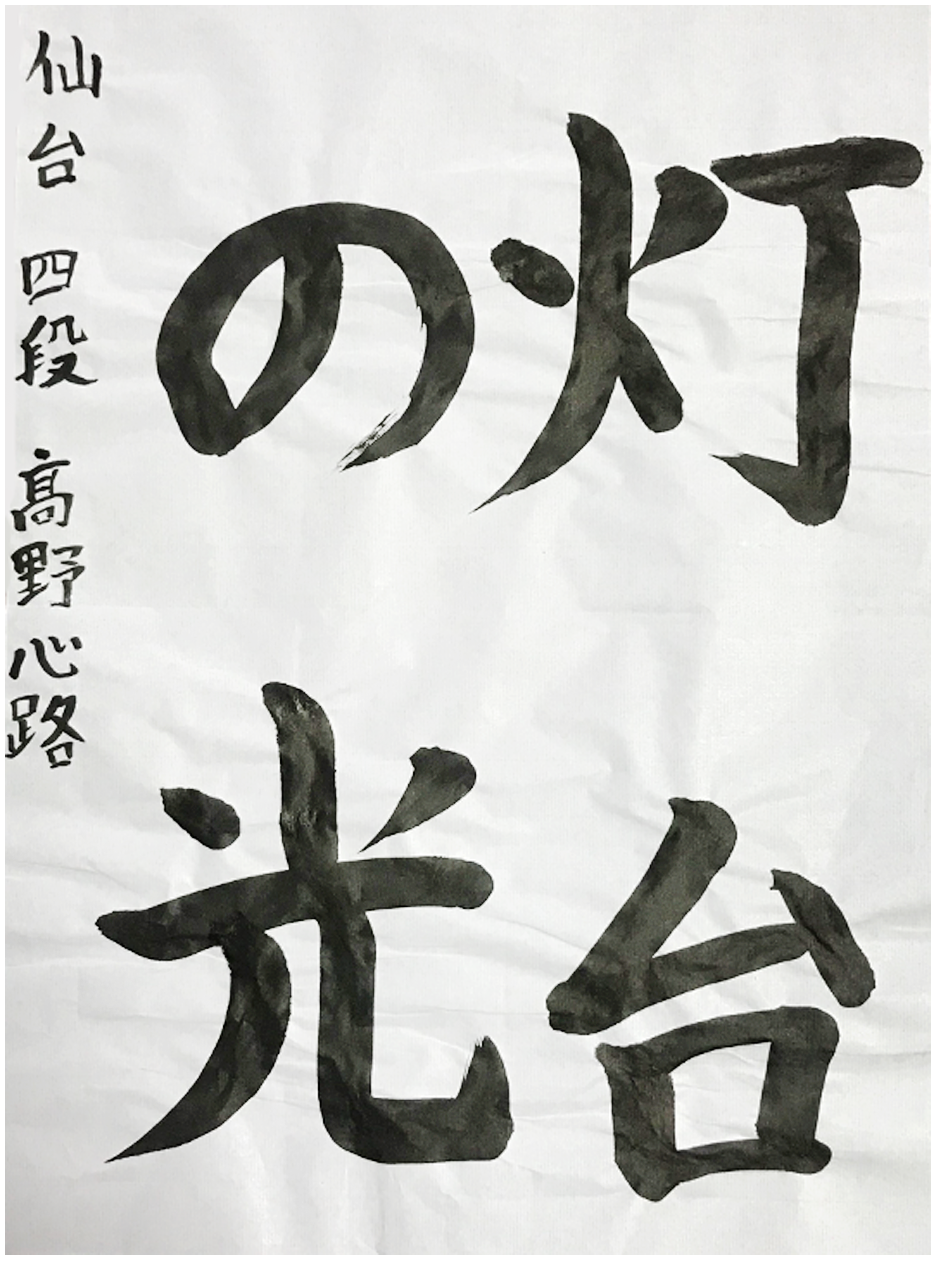 灯台
の光
仙台 四段 髙野心路